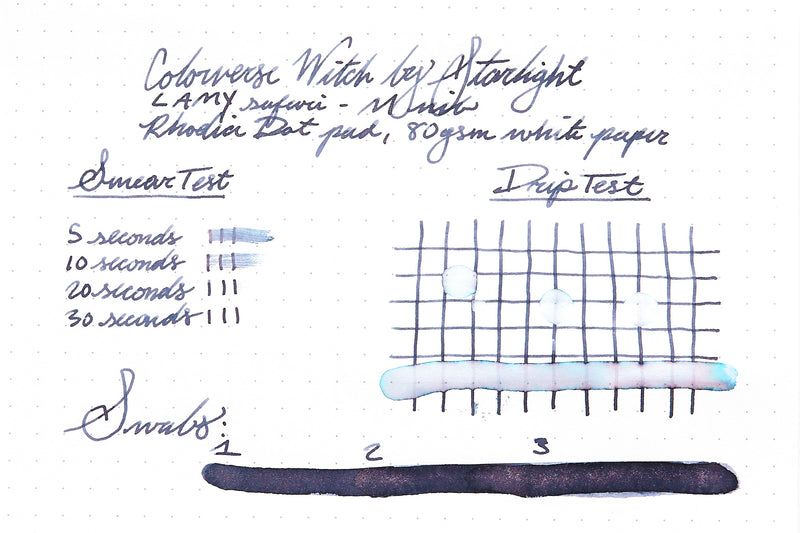 Colorverse Witch by Starlight
LAMY safari - M nib
Rhodia Dot pad, 80gsm white paper
Smear Test
5 seconds
10 seconds
20 seconds
30 seconds
Drip Test
Swabs:
1 2 3